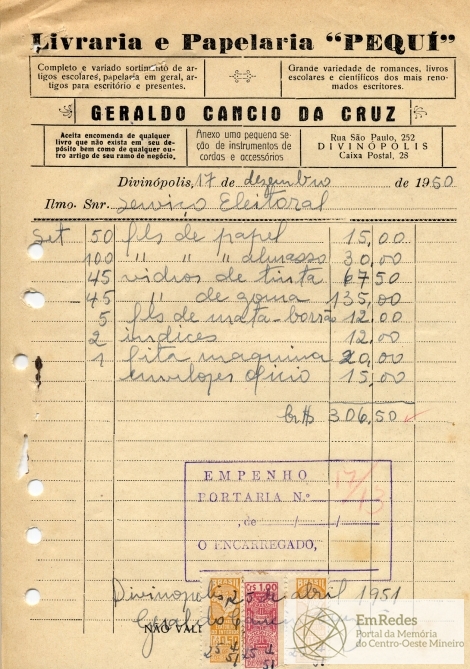 Livraria e Papelaria "PEQUÍ"
Completo e variado sortimento de ar-
tigos escolares, papelaria em geral, ar-
tigos para escritório e presentes.
Grande variedade de romances, livros
escolares e científicos dos mais reno-
mados escritores.
GERALDO CANCIO DA CRUZ
Aceita encomenda de qualquer
livro que não exista em seu de-
pósito bem como de qualquer ou-
tro artigo de seu ramo de negócio,
Anexo uma pequena se-
ção de instrumentos de
cordas e accessórios
Rua São Paulo, 252
DIVINÓPOLIS
Caixa Postal, 28
Divinópolis, 17 de dezembro de 1950
Ilmo. Snr. Serviço Eleitoral
Set 50 fls de papel 15,00
100 " " " almasso 30,00
45 vidros de tinta 67,50
45 " de goma 135,00
5 fls de mata-borrão 12,00
2 indices 12,00
1 fita maquina 20,00
envelopes oficio 15,00
Cr$ 306,50
EMPENHO
PORTARIA N.º
, de / /
O ENCARREGADO,
Divinopolis 25 de abril 1951
Geraldo
NÃO VALE
BRASIL
C$ 1,00
BRASIL
EmRedes
Portal da Memória
do Centro-Oeste Mineiro